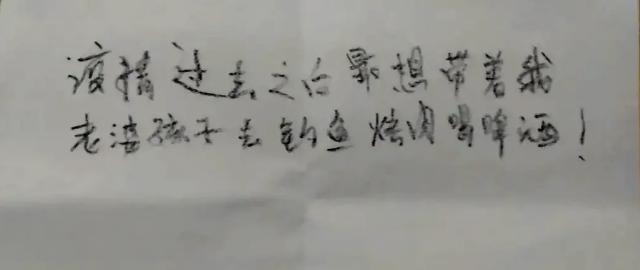 疫情过去之后最想带着我
老婆孩子去钓鱼烧肉喝啤酒!